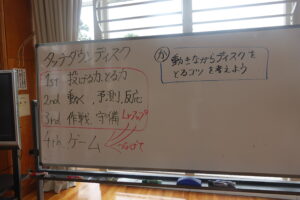 タッチダウンディスク
1st 投げる力、とる力
2nd 動く、予測、反応
3rd 作戦 守備
4th ゲーム
か 動きながらディスクを
とるコツを考えよう